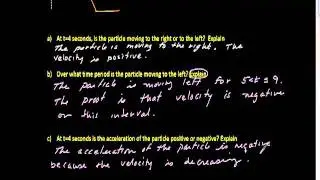 a) At t=4 seconds, is the particle moving to the right or to the left? Explain
The particle is moving to the right. The
velocity is positive.
b) Over what time period is the particle moving to the left? Explain
The particle is moving left for 5<t≤9.
The proof is that velocity is negative
on this interval.
c) At t=4 seconds is the acceleration of the particle positive or negative? Explain
The acceleration of the particle is negative
because the velocity is decreasing.